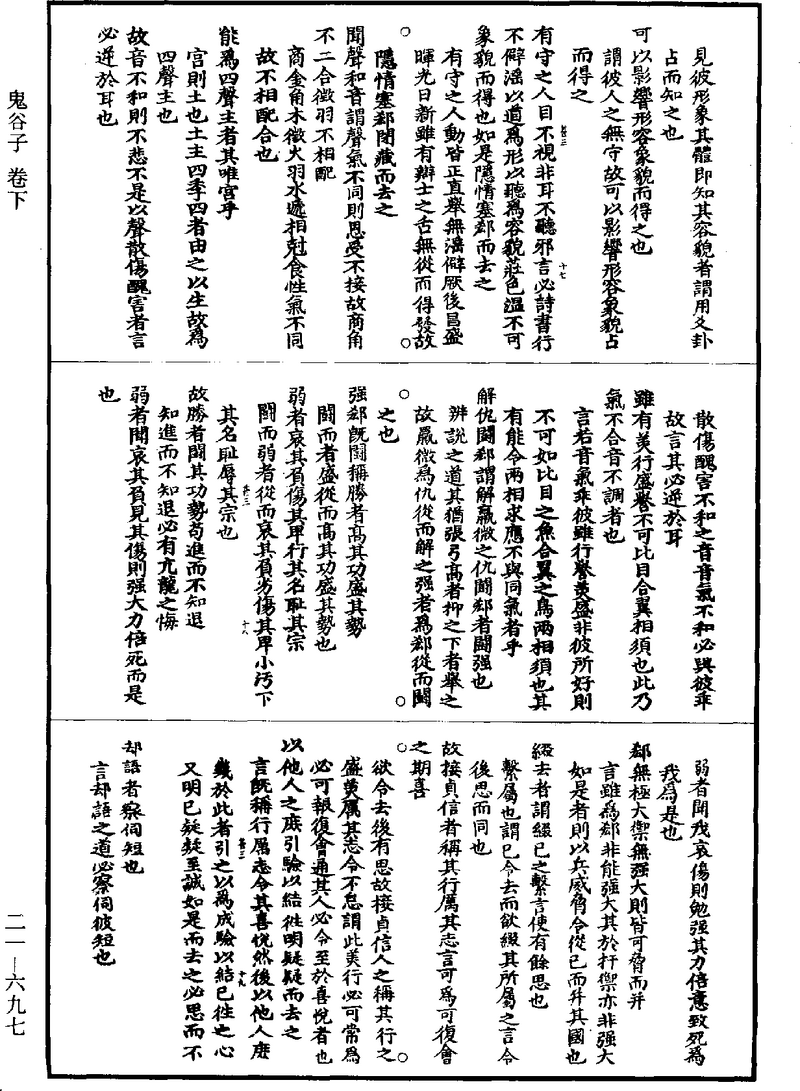 見彼形象其體即知其容貌者謂用爻卦
占而知之也
可以影響形容象貌而得之也
謂彼人之無守故可以影響形容象貌占
而得之
有守之人目不視非耳不聽邪言必詩書行
不僻淫以道為形以聽為容貌莊色溫不可
象貌而得也如是隱情塞郄而去之
有守之人動皆正直舉無淫僻厥後昌盛
暉光日新雖有辯士之舌無從而得發故
隱情塞郄閉藏而去之
聞聲和音謂聲氣不同則恩受不接故商角
不二合徵羽不相配
商金角木徵火羽水遞相剋食性氣不同
故不相配合也
能為四聲主者其唯宮乎
宮則土也土主四季四者由之以生故為
四聲主也
故音不和則不悲不是以聲散傷醜害者言
必逆於耳也
散傷醜害不和之音音氣不和必與彼乖
故言其必逆於耳
雖有美行盛譽不可比目合翼相須也此乃
氣不合音不調者也
言若音氣乖彼雖行譽美盛非彼所好則
不可如比目之魚合翼之鳥兩相須也其
有能令兩相求應不與同氣者乎
解仇鬭郄謂解羸微之仇鬭郄者鬭强也
辨說之道其猶張弓高者抑之下者舉之
故羸微為仇從而解之强者為郄從而鬭
之也
强郄既鬭稱勝者高其功盛其勢
鬭而者盛從而高其功盛其勢也
弱者哀其負傷其卑行其名耻其宗
鬭而弱者從而哀其負劣傷其卑小污下
其名耻辱其宗也
故勝者聞其功勢苟進而不知退
知進而不知退必有亢龍之悔
弱者聞哀其負見其傷則强大力倍死而是
也
弱者聞我哀傷則勉强其力倍意致死為
我為是也
郄無極大禦無强大則皆可脅而并
言雖為郄非能强大其於扞禦亦非强大
如是者則以兵威脅令從己而并其國也
綴去者謂綴己之繫言使有餘思也
繫屬也謂己令去而欲綴其所屬之言令
後思而同也
故接貞信者稱其行厲其志言可為可復會
之期喜
欲令去後有思故接貞信人之稱其行之
盛美厲其志令不怠謂此美行必可常為
必可報復會通其人必令至於喜悅者也
以他人之庶引驗以結往明疑疑而去之
言既稱行厲志令其喜悅然後以他人庶
幾於此者引之以為成驗以結己往之心
又明已疑疑至誠如是而去之必思而不
却語者察伺短也
言却語之道必察伺彼短也
鬼谷子 卷下
二一—六九七